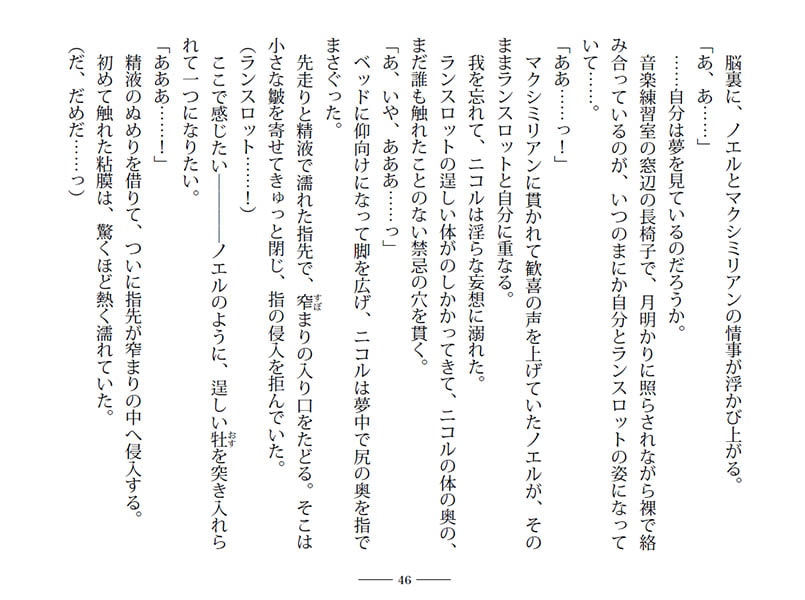 脳裏に、ノエルとマクシミリアンの情事が浮かび上がる。
「あ、あ……」
……自分は夢を見ているのだろうか。
音楽練習室の窓辺の長椅子で、月明かりに照らされながら裸で絡
み合っているのが、いつのまにか自分とランスロットの姿になって
いて……。
「ああ……っ！」
マクシミリアンに貫かれて歓喜の声を上げていたノエルが、その
ままランスロットと自分に重なる。
我を忘れて、ニコルは淫らな妄想に溺れた。
ランスロットの逞しい体がのしかかってきて、ニコルの体の奥の、
まだ誰も触れたことのない禁忌の穴を貫く。
「あ、いや、あああ……っ」
ベッドに仰向けになって脚を広げ、ニコルは夢中で尻の奥を指で
まさぐった。
先走りと精液で濡れた指先で、窄すぼまりの入り口をたどる。そこは
小さな皺を寄せてきゅっと閉じ、指の侵入を拒んでいた。
（ランスロット……！）
ここで感じたい――――ノエルのように、逞しい牡おすを突き入れら
れて一つになりたい。
「あああ……！」
精液のぬめりを借りて、ついに指先が窄まりの中へ侵入する。
初めて触れた粘膜は、驚くほど熱く濡れていた。
（だ、だめだ……っ）
46